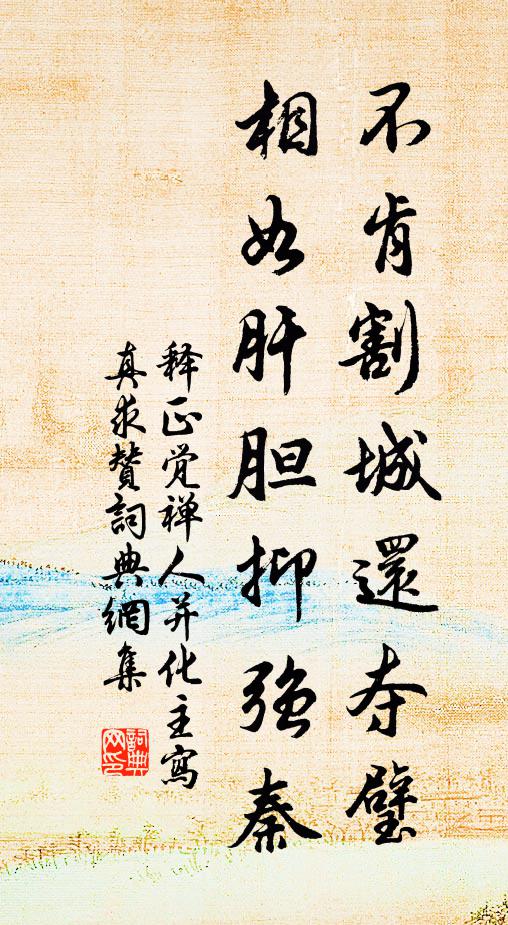 不肯割城还夺璧
相如肝胆抑强秦
释正觉禅人并化主寫
真求赞詞典網集
詞典
网印